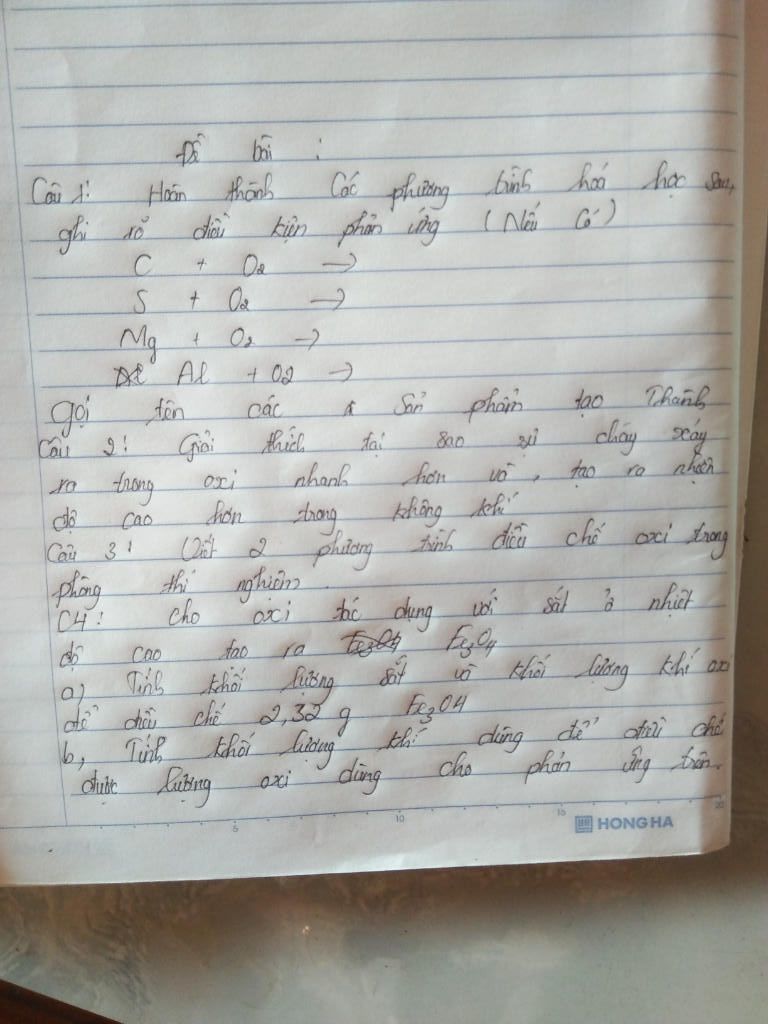 Đề bài :
Câu 1: Hoàn thành Các phương trình hoá học sau,
ghi rõ điều kiện phản ứng (Nếu Có)
C + O2 →
S + O2 →
Mg + O2 →
Al + O2 →
gọi tên các sản phẩm tạo Thành
Câu 2: Giải thích tại sao sự cháy xảy
ra trong oxi nhanh hơn và, tạo ra nhiệt
độ cao hơn trong không khí
Câu 3: Viết 2 phương trình điều chế oxi trong
phòng thí nghiệm.
C4: cho oxi tác dụng với sắt ở nhiệt
độ cao tạo ra Fe3O4 Fe3O4
a, Tính khối lượng sắt và khối lượng khí oxi
để điều chế 2,32 g Fe3O4
b, Tính khối lượng khí dùng để điều chế
được lượng oxi dùng cho phản ứng trên.
5 10 15 20
HONG HA